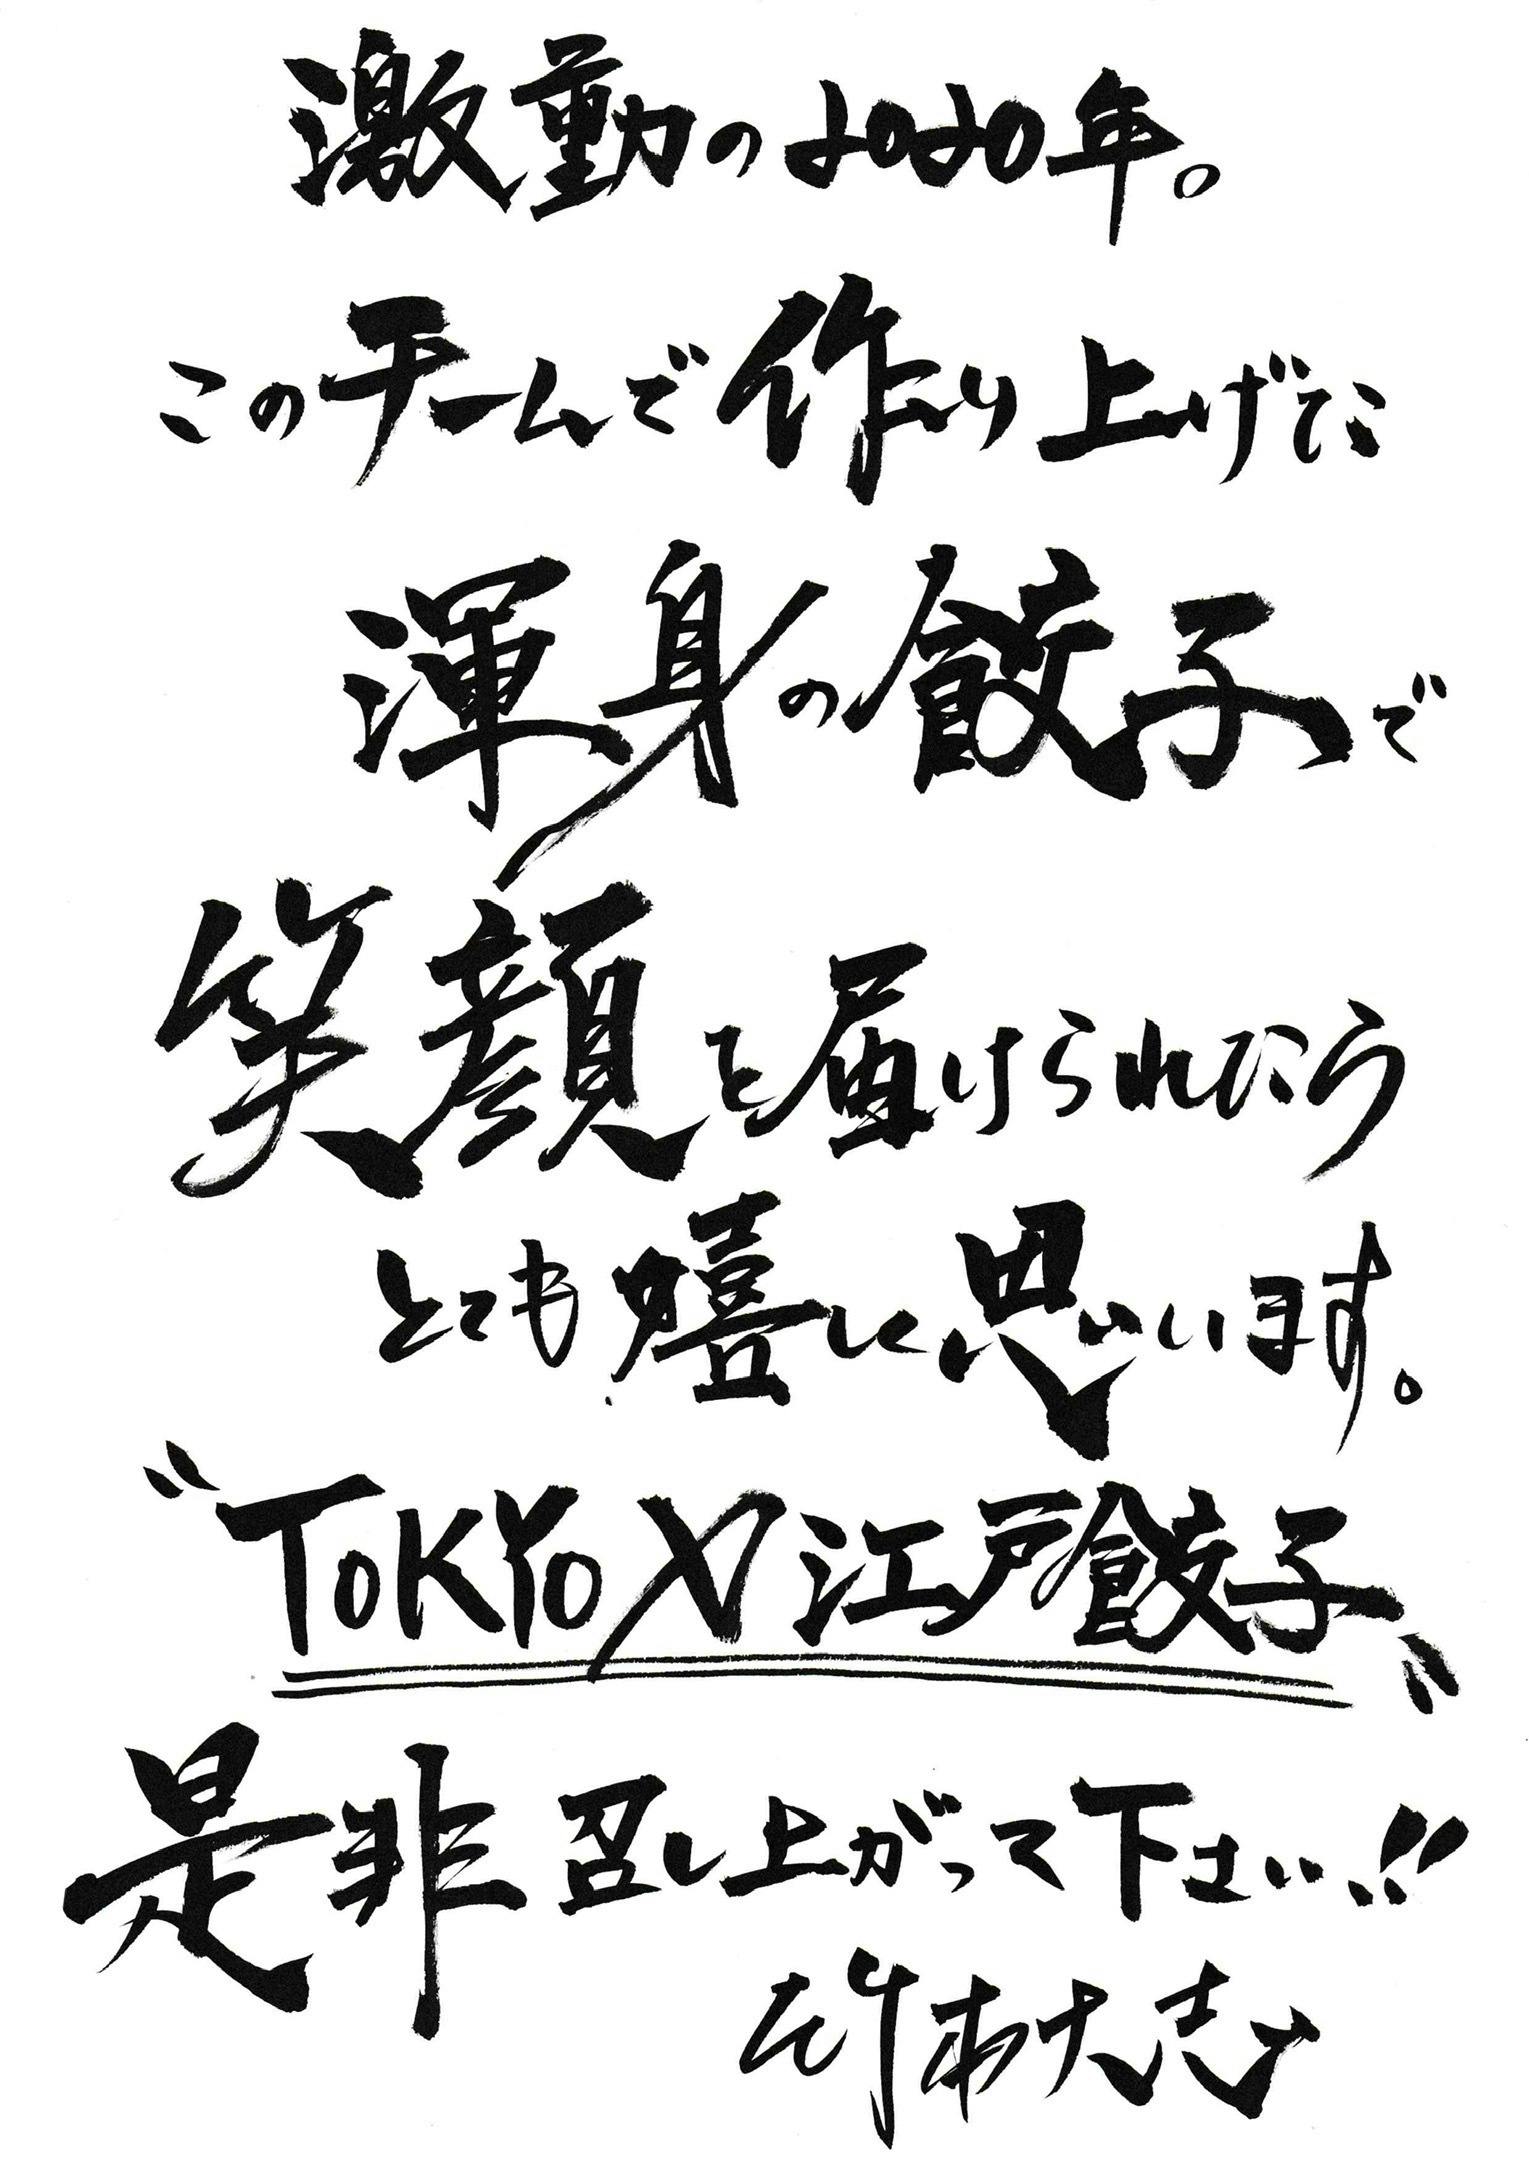 激動の2020年。
このチームで作り上げた
渾身の餃子で
笑顔を届けられたら
とても嬉しく思います。
〝TOKYO X 江戸餃子〟
是非召し上がって下さい!!
竹本大志